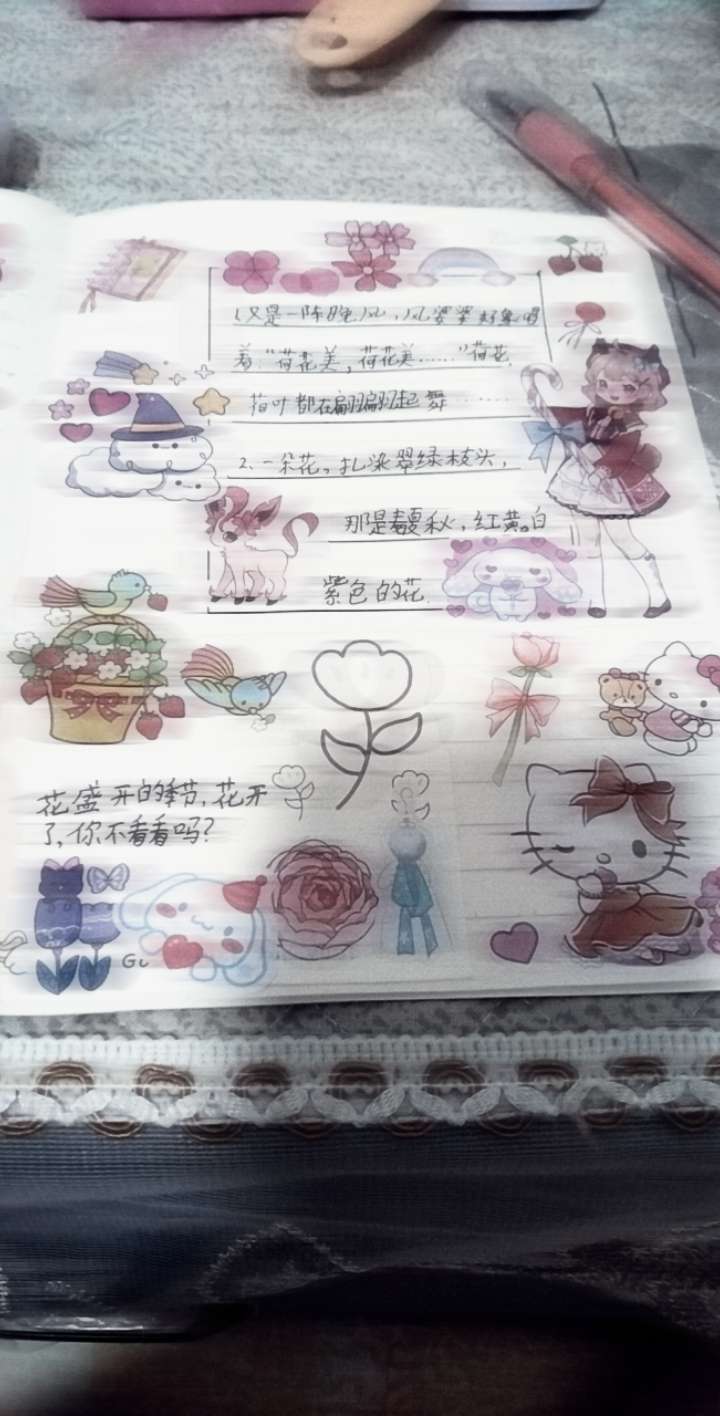 1.又是一阵晚风,风婆婆好象唱
着:“荷花美,荷花美……”荷花
荷叶都在翩翩起舞……
2.一朵花。扎染翠绿枝头,
那是春夏秋,红黄。白
紫色的花.
花盛开的季节,花开
了,你不看看吗?